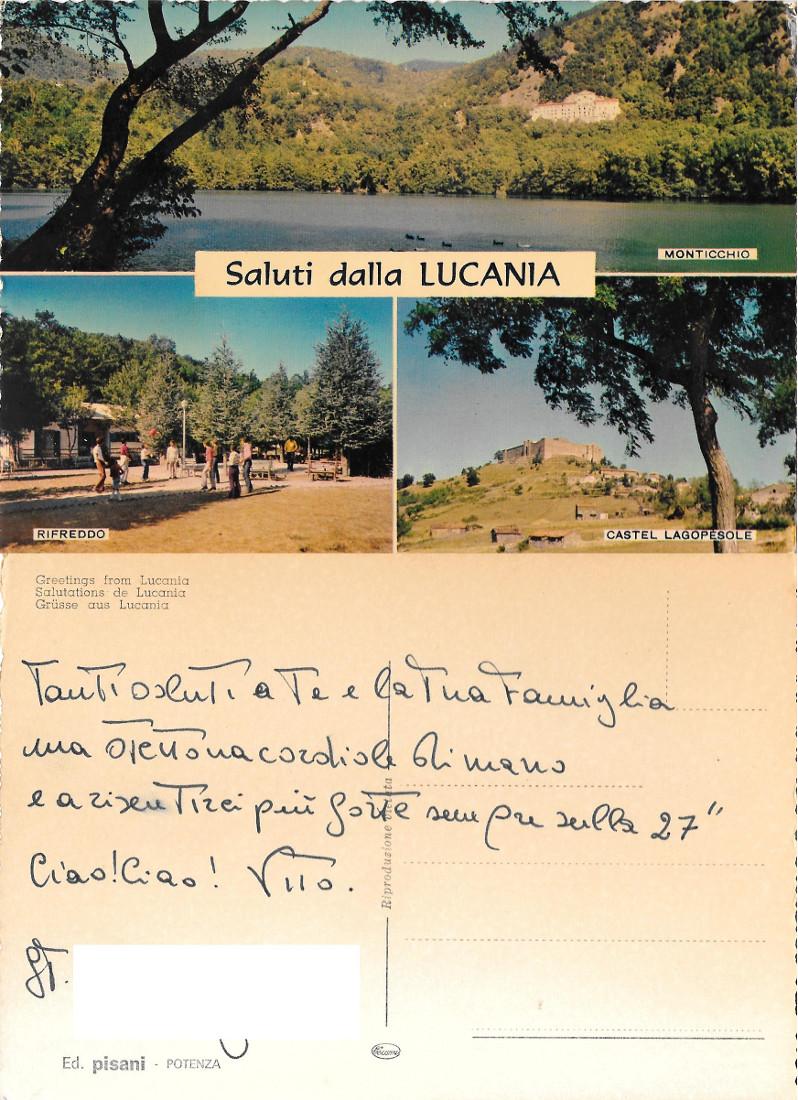 MONTICCHIO
Saluti dalla LUCANIA
RIFREDDO
CASTEL LAGOPESOLE
Greetings from Lucania
Salutations de Lucania
Grüsse aus Lucania
Tanti saluti a Te e la Tua Famiglia
una stretta cordiale di mano
e a risentirci più forte sempre sulla 27"
Ciao! Ciao! Vito.
ST.
Riproduzione vietata
Ed. pisani - POTENZA